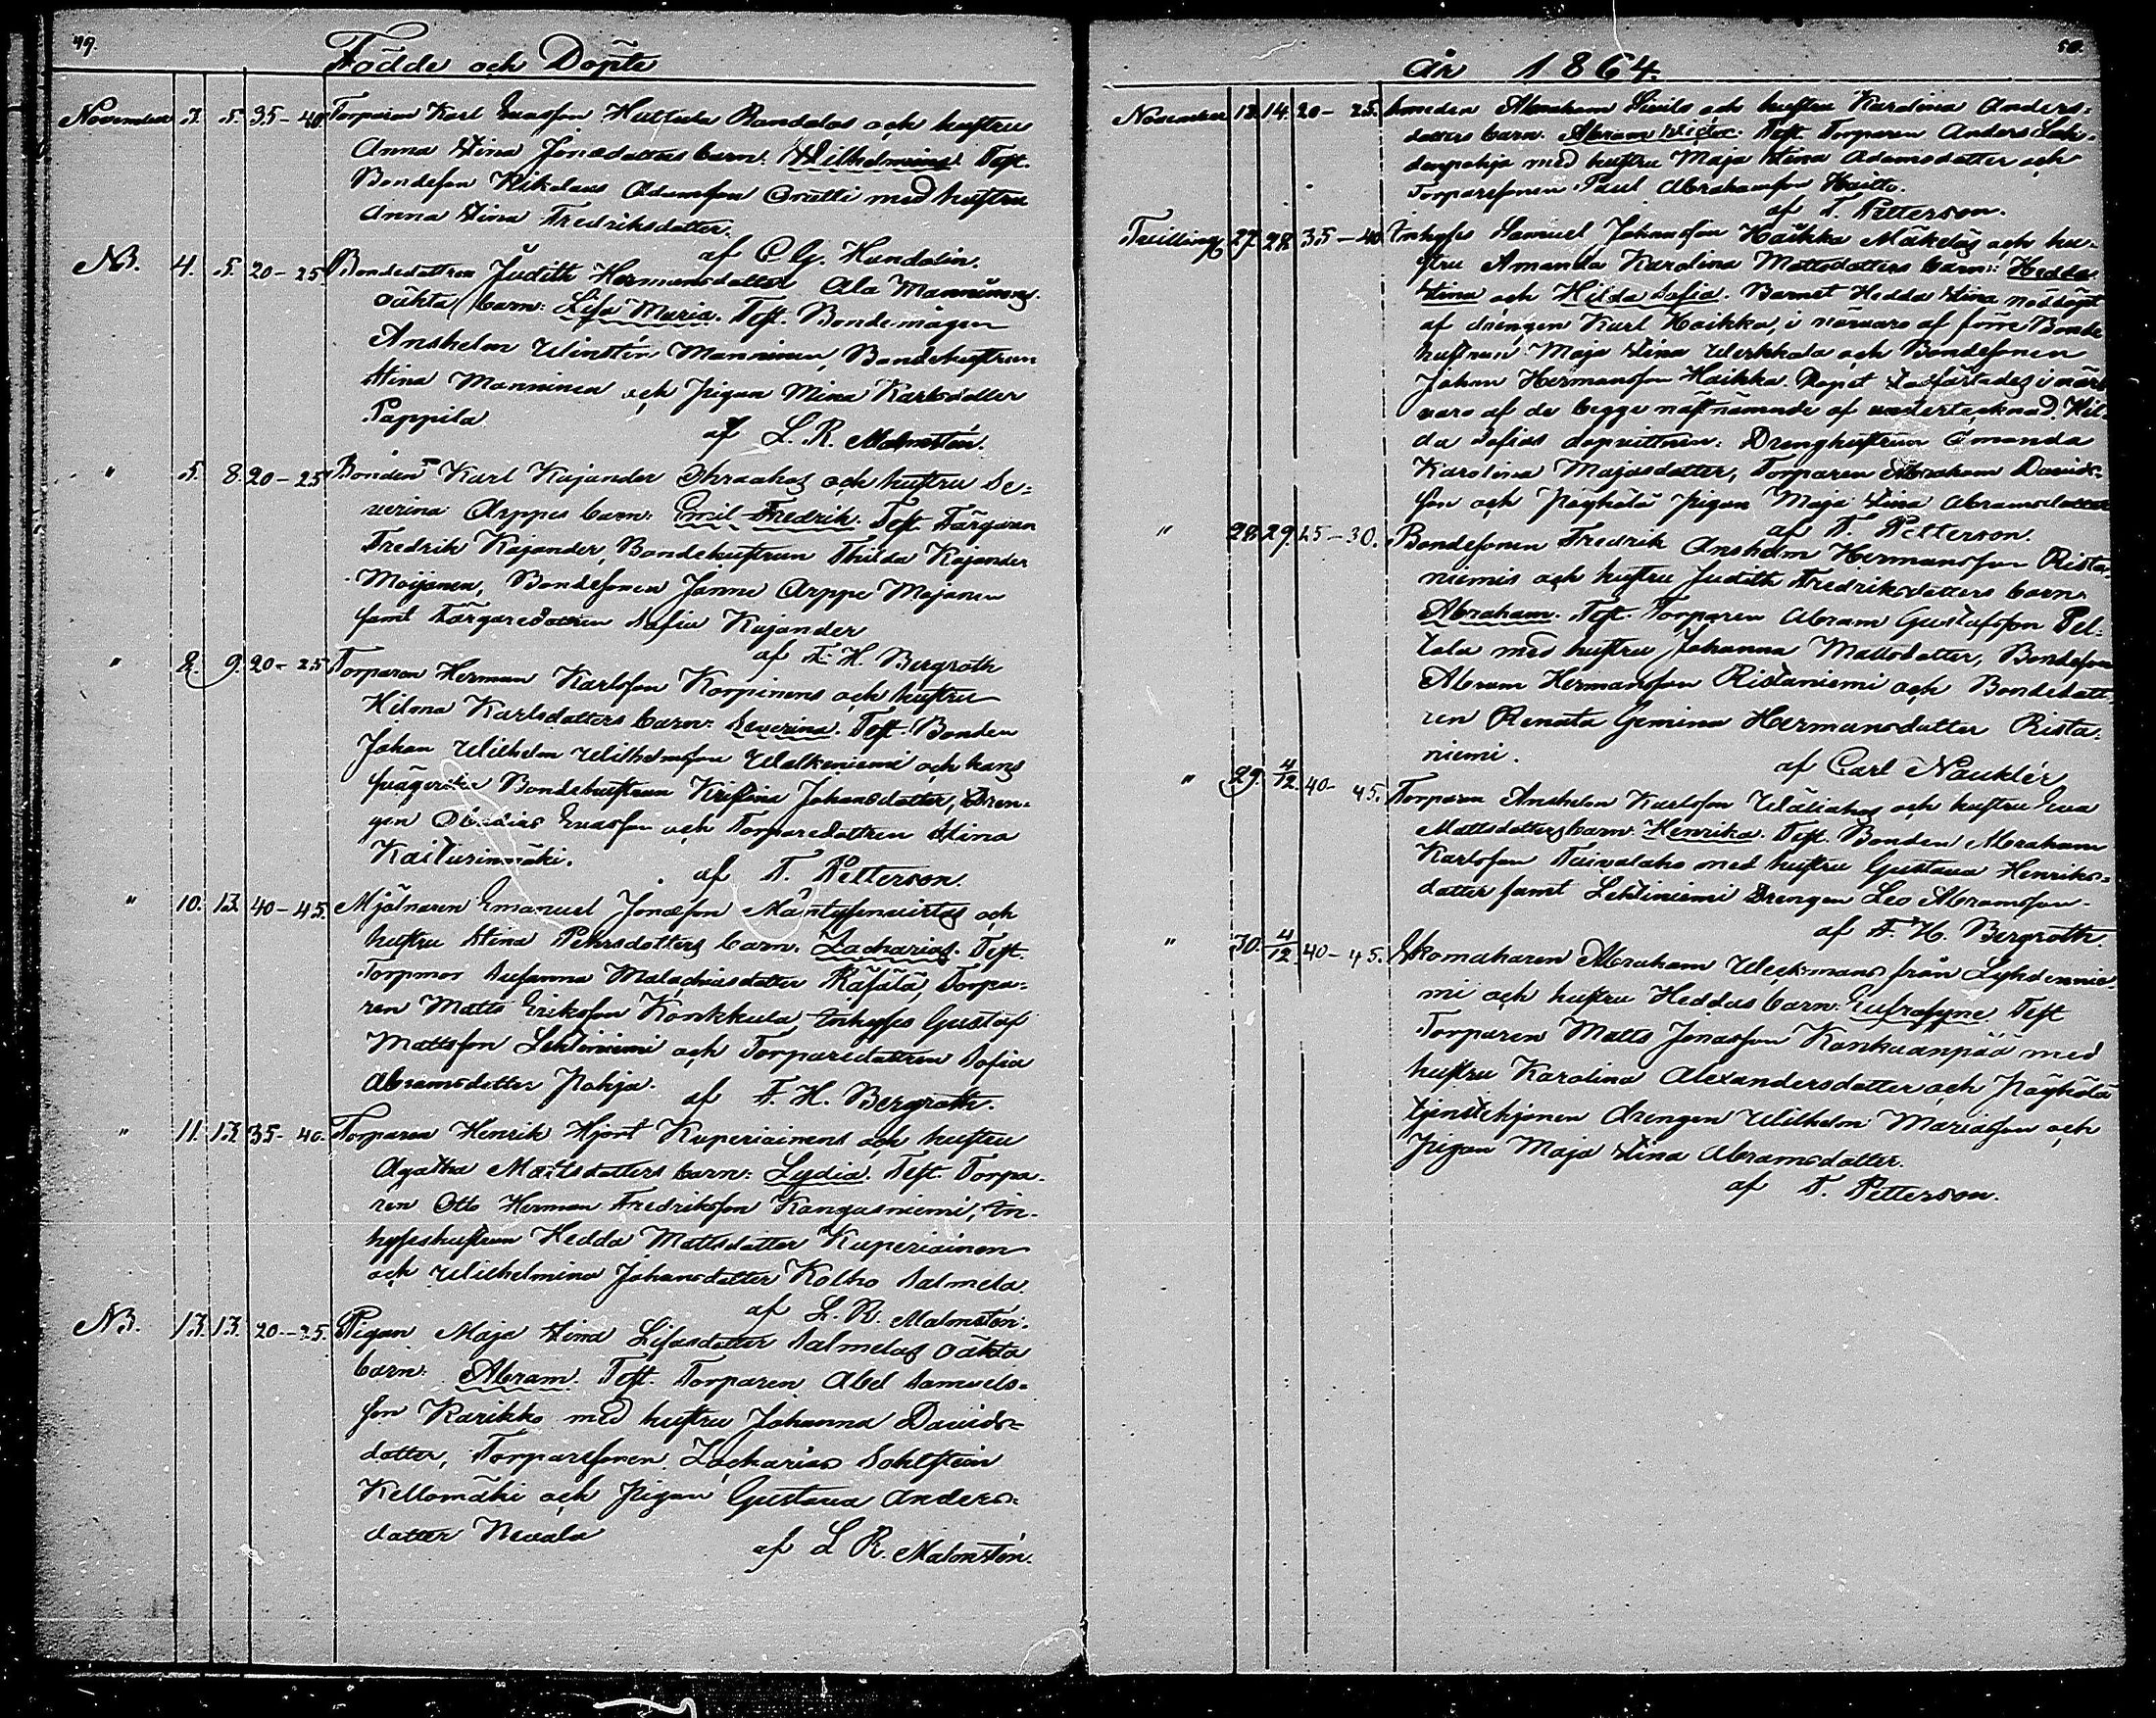 49.
Födde och Döpte
November 3. 5. 35-40. Torparen Karl Evasson Huttula Randalas och hustru
Anna Stina Jonasdotters barn. Wilhelmina. Test.
Bondeson Nikolaus Adamsson med hustru
Anna Stina Fredriksdotter.
af C. G. Hundalin.
NB. 4. 5. 20-25 Bondedottren Judith Hermansdotter Ala Manninens
oäkta barn: Lisa Maria. Test. Bondemågen
Anshelm Winstén Manninen, Bondehustrun
Stina Manninen och Pigan Mina Karlsdotter
Pappila
af L. R. Malmstén.
" 5. 8. 20-25 Bonden Karl Kajander och hustru Se=
verina Arppes barn: Emil Fredrik. Test. Färgaren
Fredrik Kajander, Bondehustrun Thilda Kajander
Moijanen, Bondesonen Janne Arppe Mojanen
samt Färgaredottren Sofia Kajander
af F. H. Bergroth
" 8. 9. 20-25 Torparen Herman Karlsson Korpinens och hustru
Hilma Karlsdotters barn: Severina. Test. Bonden
Johan Wilhelm Wilhelmsson Walkeniemi och hans
svägerska Bondehustrun Kristina Johansdotter, Dren-
gen Obadias Evasson och Torparedottren Stina
Kaiturinmäki.
af T. Petterson.
" 10. 13. 40-45. Mjölnaren Emanuel Jonasson och
hustru Stina Pehrsdotters barn. Zacharias. Test.
Torpmor Susanna Malachiasdotter Räfälä, Torpa=
ren Matts Eriksson Konkkula Inhyses Gustaf
Mattsson Lehtiniemi och Torparedottren Sofia
Abramsdotter Pohja.
af F. H. Bergroth.
" 11. 13. 35-40. Torparen Henrik Hjort Kuperiainens och hustru
Agatha Mattsdotters barn: Lydia. Test. Torpa-
ren Otto Herman Fredriksson Kangasniemi, In-
hyseshustrun Hedda Mattsdotter Kuperiainen
och Wilhelmina Johansdotter Kolho Salmela.
af L. R. Malmstén.
NB. 13. 13. 20-25. Pigan Maja Stina Lisasdotter Salmelas oäkta
barn: Abram. Test. Torparen Abel Samuels=
son Karikko med hustru Johanna Davids=
dotter, Torparesonen Zacharias Sohlstein
Kellomäki och Pigan Gustava Anders=
dotter Nevala
af L R. Malmstén.
50.
år 1864.
November 13. 14. 20-25. Smeden Abraham och hustru Karolina Anders=
dotters barn. Abram Victor. Test. Torparen Anders
med hustru Maja Stina Adamsdotter och
Torparesonen Paul Abrahamsson Haitto.
af T. Petterson.
Tvilling 27. 28. 35-40 Inhyses Samuel Johansson Haikka Mäkeläs och hu-
stru Amanda Karolina Mattsdotters barn: Hedda
Stina och Hilda Sofia. Barnet Hedda Stina nöddöpt
af drengen Karl Haikka, i närvaro af förre Bonde
hustrun Maja Stina Werkkala och Bondesonen
Johan Hermansson Haikka. Dopet stadfästades i när=
varo af de begge näst nämnde af undertecknad. Hil=
da Sofias dopvittnen: Drenghustrun Amanda
Karolina Majasdotter, Torparen Abraham Davids=
son och Pigan Maja Stina Abramsdotter
af T. Petterson.
" 28. 29. 25-30. Bondesonen Fredrik Anshelm Hermansson Rista=
niemis och hustru Judith Fredriksdotters barn
Abraham. Test. Torparen Abram Gustafsson Pel=
tola med hustru Johanna Mattsdotter, Bondeson
Abram Hermansson Ristaniemi och Bondedott=
ren Renata Gemina Hermansdotter Rista=
niemi.
af Carl Nauklér
" 29. 4/12. 40-45. Torparen Anshelm Karlsson Wäliahos och hustru Eva
Mattsdotters barn. Henrika. Test. Bonden Abraham
Karlsson Taivalaho med hustru Gustava Henriks=
dotter samt Lehtiniemi Drengen Leo Abramsson.
af F. H. Bergroth.
" 30. 4/12. 40-45. Skomakaren Abraham Weckmans från Lyhdennie
mi och hustru Heddas barn: Eufrosyne. Test
Torparen Matts Jonasson Kankaanpää med
hustru Karolina Alexandersdotter och
tjenstehjonen drengen Wilhelm Mariasson och
Pigan Maja Stina Abramsdotter.
af T. Petterson.